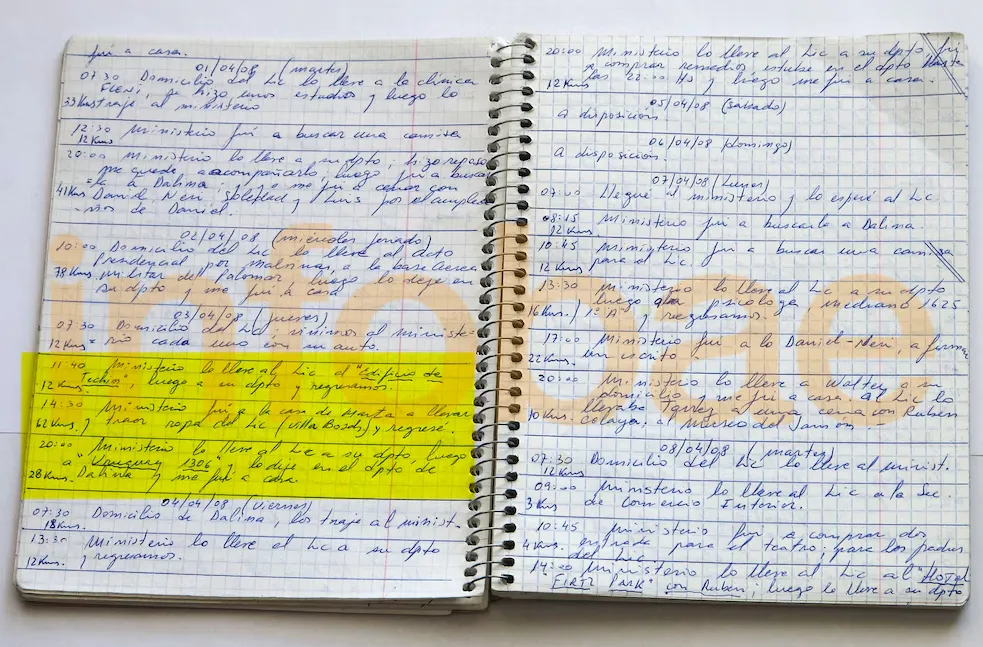 fui a casa.
01/04/08 (martes)
07:30 Domicilio del Lic lo lleve a la clinica
FLENI, se hizo unos estudios y luego lo
33Kms traje al ministerio
12:30 Ministerio fui a buscar una camisa
12 Kms
20:00 Ministerio lo lleve a su dpto; hizo reposo
me quede acompañarlo, luego fui a busca
41Kms =la a Dalina; y me fui a cenar con
Daniel Neri, y Luis por el cumplea
=ños de Daniel.
02/04/08 (miércoles feriado)
10:00 Domicilio del Lic lo lleve al acto
Presidencial por malvinas, a la base Aerea
78Kms militar del Palomar luego lo deje en
su dpto y me fui a casa
03/04/08 (jueves)
07:30 Domicilio del Lic; vinimos al ministe=
12Kms = rio cada uno con su auto.
11:40 Ministerio lo lleve al Lic al "Edificio de
12 Kms Techint", luego a su dpto y regresamos.
14:30 Ministerio fui a la casa de Marta a llevar
62 Kms y traer ropa del Lic (Villa Bosch) y regresé.
20:00 Ministerio lo lleve al Lic a su dpto, luego
a "Uruguay 1306" y lo deje en el dpto de
28Kms. Dalina y me fui a casa.
04/04/08 (viernes)
07:30 Domicilio de Dalina, los traje al minist.
18Kms.
13:30 Ministerio lo lleve el Lic a su dpto
12 Kms. y regresamos.
20:00 Ministerio lo lleve al Lic a su dpto fui
a comprar remedios estube en el dpto hasta
las 22:00 Hs y luego me fui a casa.
12Kms
05/04/08 (sabado)
a disposición
06/04/08 (domingo)
a disposición.
07/04/08 (Lunes)
07:00 Llegué al ministerio y lo esperé al Lic
08:15 Ministerio fui a buscarla a Dalina.
12 Kms
10:45 Ministerio fui a buscar una camisa
12 Kms para el Lic
13:30 Ministerio lo lleve al Lic a su dpto
luego a la psicologa Medrano 1625
16Kms./ 1º "A" y regresamos.
17:00 Ministerio fui a lo Daniel-Neri, a firmar
22Kms un escrito
20:00 Ministerio lo lleve a Walter a su
domicilio y me fui a casa al Lic lo
10Kms. llevaba Fgrey a una cena con Ruben
Colaya, al Museo del Jamon -
08/04/08 (martes)
07:30 Domicilio del Lic lo lleve al minist.
12 Kms
09:00 Ministerio lo lleve al Lic a la Sec.
3 Kms de Comercio Interior.
10:45 Ministerio fui a comprar dos
4Kms. entrada para el teatro; para los padres
del Lic
14:00 Ministerio lo lleve al Lic al "Hotel
FIRTZ PARK" con Ruben, luego lo lleve a su dpto
infobae